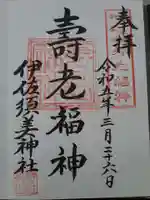 奉拝
令和五年三月二十六日
壽老福神
伊佐須美神社